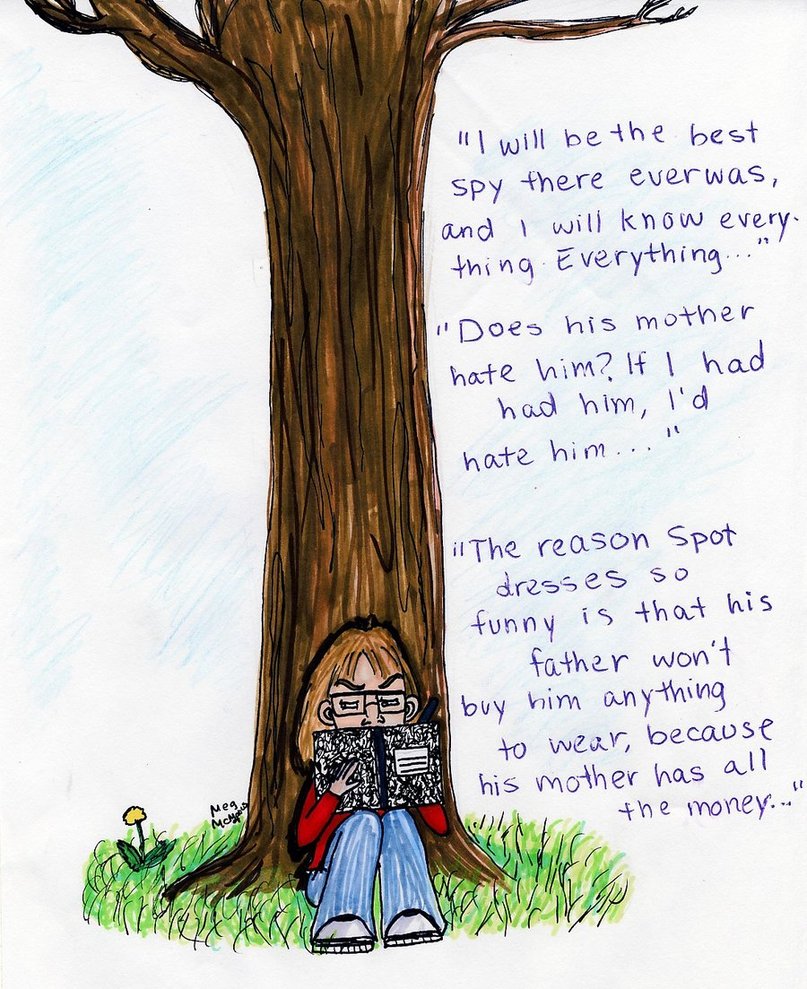 "I will be the best
spy there ever was,
and I will know every-
thing. Everything..."
"Does his mother
hate him? If I had
had him, I'd
hate him..."
"The reason Spot
dresses so
funny is that his
father won't
buy him anything
to wear, because
his mother has all
the money..."
Meg